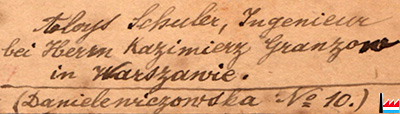 Aloys Schuler, Ingenieur
bei Herrn Kazimierz Granzow
in Warszawie.
(Danielewiczowska № 10.)